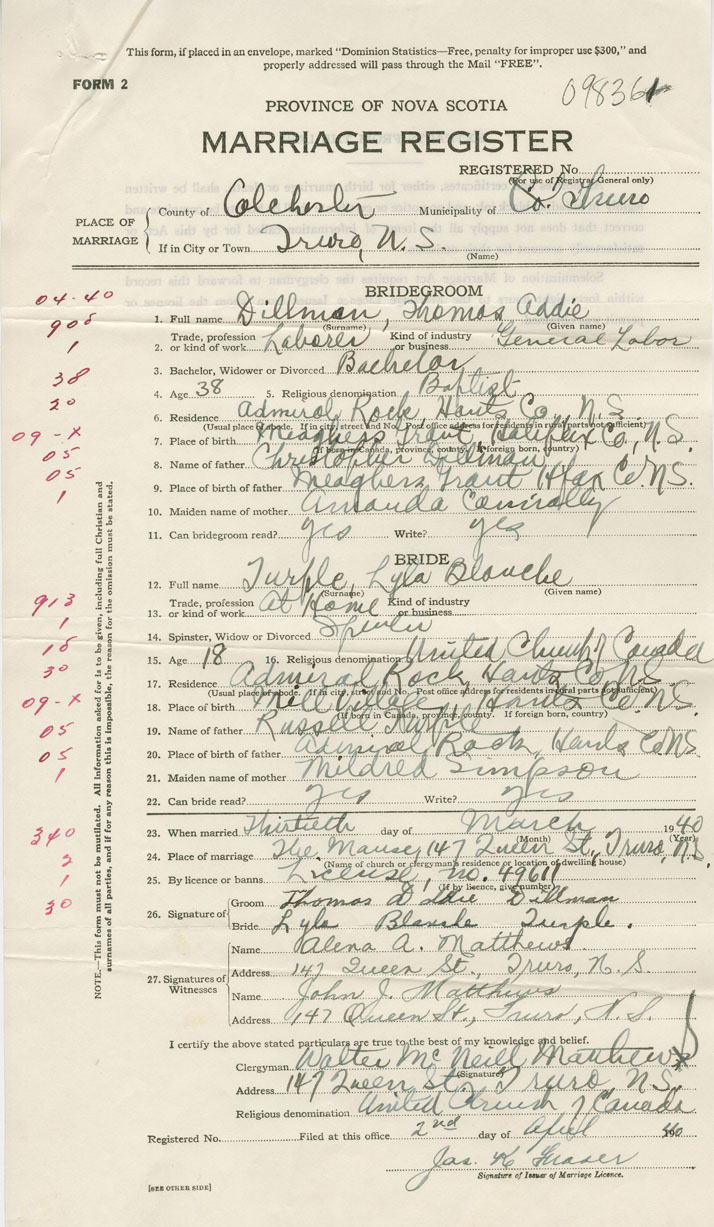 This form, if placed in an envelope, marked "Dominion Statistics—Free, penalty for improper use $300," and
properly addressed will pass through the Mail "FREE".
FORM 2
098361
PROVINCE OF NOVA SCOTIA
MARRIAGE REGISTER
REGISTERED No.
(For use of Registrar General only)
PLACE OF MARRIAGE
County of Colchester Municipality of Co. Truro
If in City or Town Truro, N. S.
(Name)
04-40
BRIDEGROOM
908
1. Full name Dillman, Thomas Addie
(Surname) (Given name)
1
2. Trade, profession or kind of work Laborer Kind of industry or business General Labor
3. Bachelor, Widower or Divorced Bachelor
38
4. Age 38 5. Religious denomination Baptist
20
6. Residence Admiral Rock, Hants Co., N. S.
(Usual place of abode. If in city, street and No. Post office address for residents in rural parts not sufficient)
09-X
7. Place of birth Meaghers Grant, Halifax Co., N. S.
(If born in Canada, province, county. If foreign born, country)
05
8. Name of father Christopher Dillman
05
9. Place of birth of father Meaghers Grant Hfax Co. N.S.
1
10. Maiden name of mother Amanda Connally
11. Can bridegroom read? yes Write? yes
BRIDE
12. Full name Turple, Lyla Blanche
(Surname) (Given name)
913
13. Trade, profession or kind of work At Home Kind of industry or business
1
14. Spinster, Widow or Divorced Spinster
18
15. Age 18 16. Religious denomination United Church of Canada
30
17. Residence Admiral Rock, Hants Co., N.S.
(Usual place of abode. If in city, street and No. Post office address for residents in rural parts not sufficient)
09-X
18. Place of birth Mill Village, Hants Co. N.S.
(If born in Canada, province, county. If foreign born, country)
05
19. Name of father Russell Turple
05
20. Place of birth of father Admiral Rock, Hants Co. N.S.
1
21. Maiden name of mother Mildred Simpson
22. Can bride read? yes Write? yes
340
23. When married Thirtieth day of March 1940
(Month) (Year)
2
24. Place of marriage The Manse, 147 Queen St., Truro, N.S.
(Name of church or clergyman's residence or location of dwelling house)
1
25. By licence or banns License, no. 49611
(If by licence, give number)
30
26. Signature of
Groom Thomas Addie Dillman
Bride Lyla Blanche Turple.
27. Signatures of Witnesses
Name Alena A. Matthews
Address 147 Queen St., Truro, N. S.
Name John J. Matthews
Address 147 Queen St., Truro, N. S.
I certify the above stated particulars are true to the best of my knowledge and belief.
Clergyman Walter McNeill Matthews
(Signature)
Address 147 Queen St. Truro, N.S.
Religious denomination United Church of Canada
Registered No. Filed at this office 2nd day of April 1940
Jas. K Fraser
Signature of Issuer of Marriage Licence.
[SEE OTHER SIDE]
NOTE.—This form must not be mutilated. All information asked for is to be given, including full Christian and
surnames of all parties, and if for any reason this is impossible, the reason for the omission must be stated.